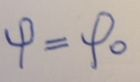 φ = φ₀